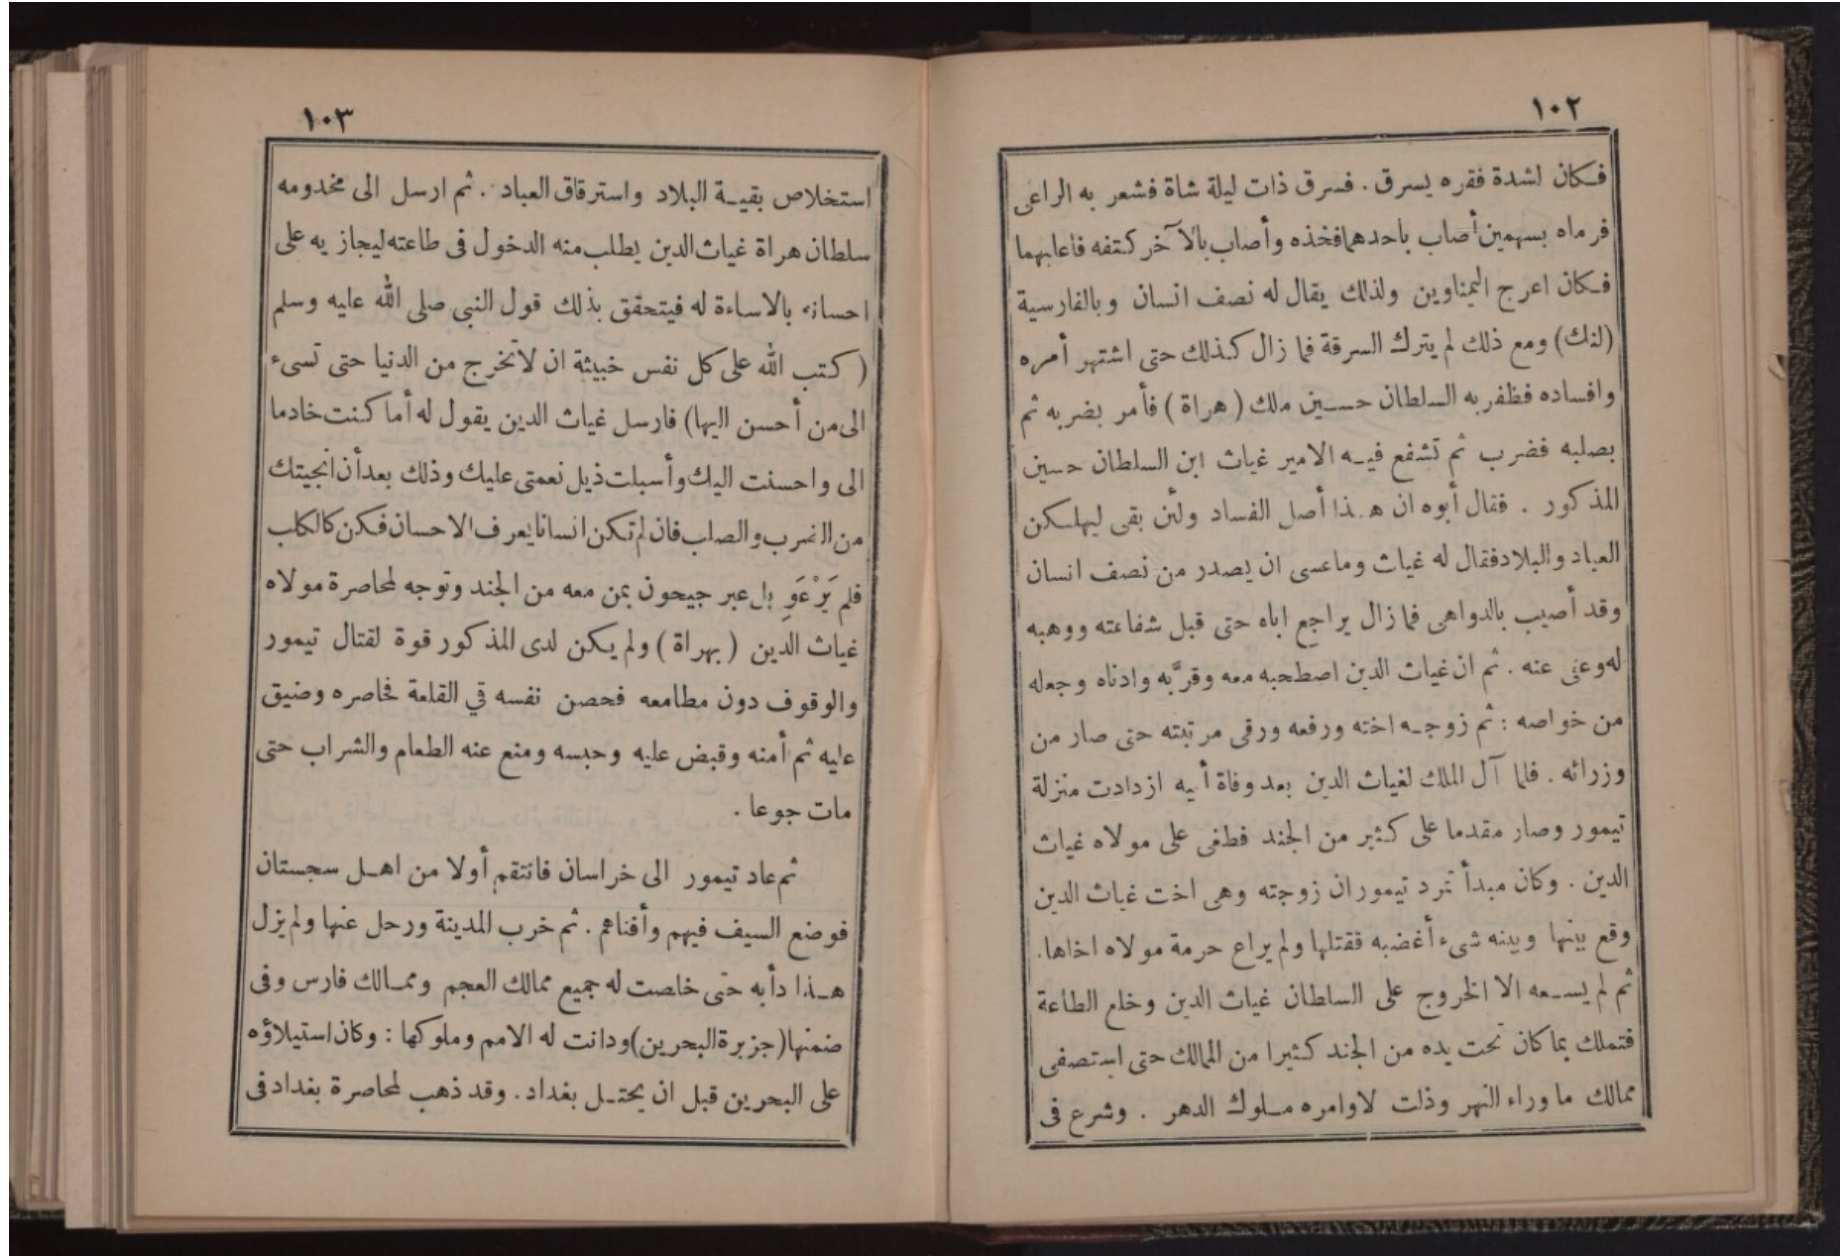 ١٠٢
فكان لشدة فقره يسرق . فسرق ذات ليلة شاة فشعر به الراعى
فرماه بسهمين أصاب باحدهما فخذه وأصاب بالآخر كتفه فاعابهما
فكان اعرج اليمناوين ولذلك يقال له نصف انسان وبالفارسية
(لنك) ومع ذلك لم يترك السرقة فما زال كذلك حتى اشتهر أمره
وافساده فظفر به السلطان حسين ملك ( هراة ) فأمر بضربه ثم
بصلبه فضرب ثم تشفع فيه الامير غياث ابن السلطان حسين
المذكور . فقال أبوه ان هذا أصل الفساد ولئن بقى ليهلكن
العباد والبلاد فقال له غياث وما عسى ان يصدر من نصف انسان
وقد أصيب بالدواهى فما زال يراجع اباه حتى قبل شفاعته ووهبه
له وعفى عنه . ثم ان غياث الدين اصطحبه معه وقرَّبه وادناه وجعله
من خواصه : ثم زوجه اخته ورفعه ورقى مرتبته حتى صار من
وزرائه . فلما آل الملك لغياث الدين بعد وفاة أبيه ازدادت منزلة
تيمور وصار مقدما على كثير من الجند فطغى على مولاه غياث
الدين . وكان مبدأ تمرد تيمور ان زوجته وهى اخت غياث الدين
وقع بينها وبينه شىء أغضبه فقتلها ولم يراع حرمة مولاه اخاها .
ثم لم يسعه الا الخروج على السلطان غياث الدين وخلع الطاعة
فتملك بما كان تحت يده من الجند كثيرا من الممالك حتى استصفى
ممالك ما وراء النهر وذلت لاوامره ملوك الدهر . وشرع فى
١٠٣
استخلاص بقية البلاد واسترقاق العباد . ثم ارسل الى مخدومه
سلطان هراة غياث الدين يطلب منه الدخول فى طاعته ليجازيه على
احسانه بالاساءة له فيتحقق بذلك قول النبى صلى الله عليه وسلم
( كتب الله على كل نفس خبيثة ان لا تخرج من الدنيا حتى تسىء
الى من أحسن اليها) فارسل غياث الدين يقول له أما كنت خادما
الى واحسنت اليك وأسبلت ذيل نعمتى عليك وذلك بعد أن انجيتك
من الضرب والصلب فان لم تكن انسانا يعرف الاحسان فكن كالكلب
فلم يَرْعَوِ بل عبر جيحون بمن معه من الجند وتوجه لمحاصرة مولاه
غياث الدين ( بهراة ) ولم يكن لدى المذكور قوة لقتال تيمور
والوقوف دون مطامعه فحصن نفسه قي القلعة فحاصره وضيق
عليه ثم أمنه وقبض عليه وحبسه ومنع عنه الطعام والشراب حتى
مات جوعا .
ثم عاد تيمور الى خراسان فانتقم أولا من اهل سجستان
فوضع السيف فيهم وأفناهم . ثم خرب المدينة ورحل عنها ولم يزل
هذا دأبه حتى خلصت له جميع ممالك العجم وممالك فارس وفى
ضمنها (جزيرة البحرين) ودانت له الامم وملوكها : وكان استيلاؤه
على البحرين قبل ان يحتل بغداد . وقد ذهب لمحاصرة بغداد فى